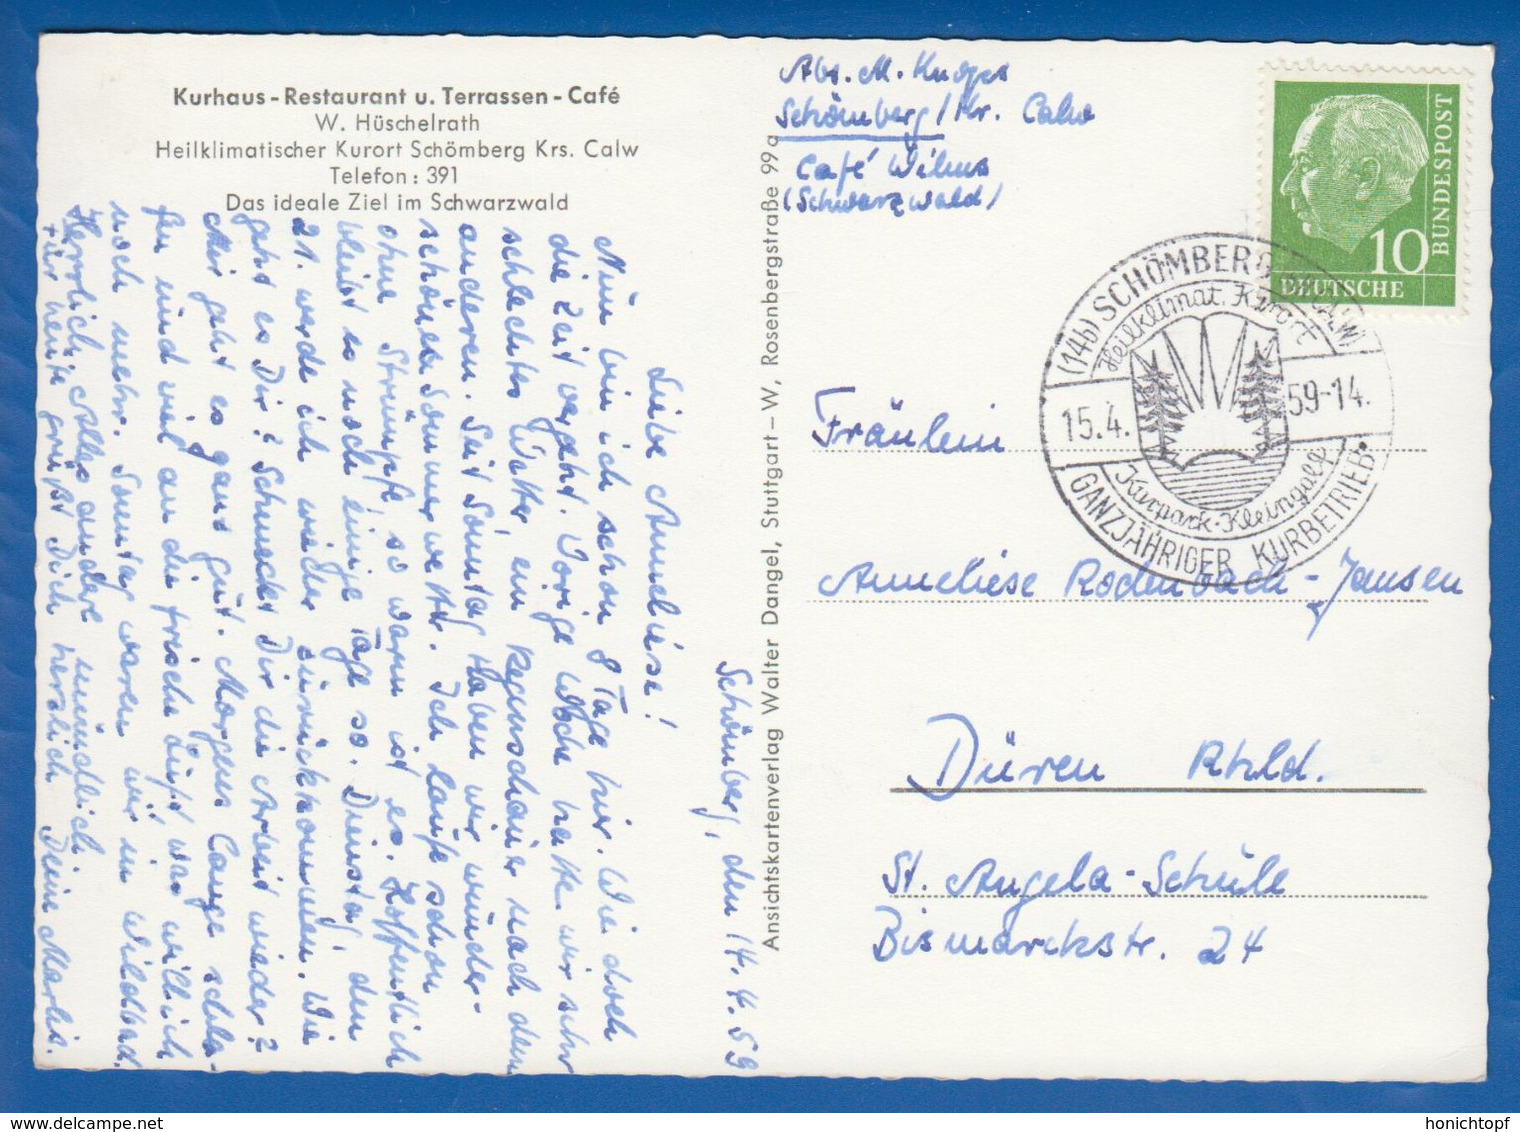 Kurhaus-Restaurant u. Terrassen-Café
W. Hüschelrath
Heilklimatischer Kurort Schömberg Krs. Calw
Telefon: 391
Das ideale Ziel im Schwarzwald
Schömberg, den 14.4.59
Liebe Anneliese!
Nun bin ich schon 8 Tage hier. Wie doch
die Zeit vergeht. Vorige Woche hatten wir sehr
schlechtes Wetter, ein Regenschauer nach dem
anderen. Seit Sonntag haben wir wunder-
schönes Sommerwetter. Ich laufe schon
ohne Strümpfe, so warm ist es. Hoffentlich
bleibt es noch einige Tage so. Dienstag, den
21. werde ich wieder zurückkommen. Wie
geht es Dir? Schmeckt Dir die Arbeit wieder?
Mir geht es ganz gut. Morgens lange schla-
fen und viel an die frische Luft was will ich
noch mehr. Sonntag waren wir in Wildbad.
Herrlich. Alles andere mündlich.
Für heute grüßt Dich herzlich Deine Marlis.
Ansichtskartenverlag Walter Dangel, Stuttgart-W, Rosenbergstraße 99a
Abs. M.
Schömberg/Kr. Calw
Café Wilms
(Schwarzwald)
DEUTSCHE BUNDESPOST
10
(14b) SCHÖMBERG (KR. CALW)
Heilklimat. Kurort
15.4. 59-14.
Kurpark-Kleingall
GANZJÄHRIGER KURBETRIEB
Fräulein
Anneliese Rodenbach-Jansen
Düren Rhld.
St. Angela-Schule
Bismarckstr. 24
honichtopf